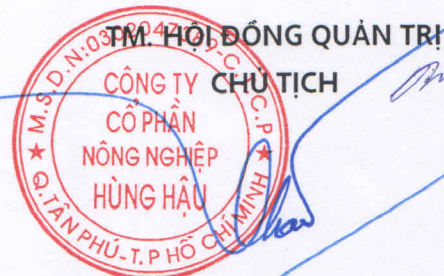 TM. HỘI ĐỒNG QUẢN TRỊ
CHỦ TỊCH
CÔNG TY
CỔ PHẦN
NÔNG NGHIỆP
HÙNG HẬU
★ Q.TÂN PHÚ-T.P HỒ CHÍ MINH ★